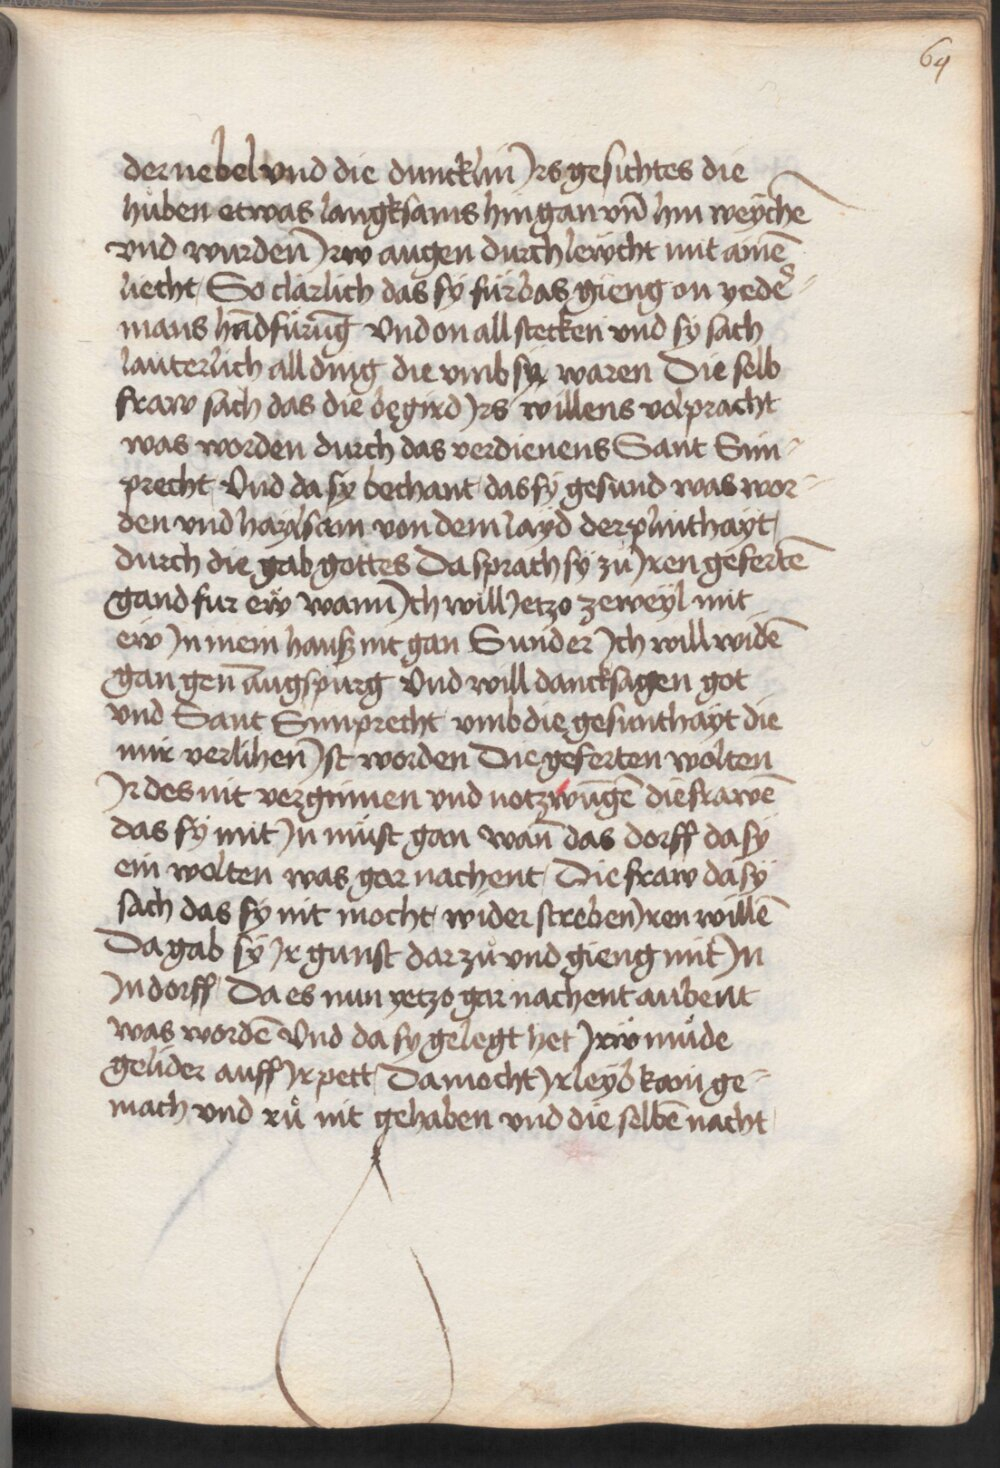 64
der nebel vnd die duncklin Jrs gesichtes die
hůben etwas langksams hin gan vn̄ hin weychē
vnd wurden Jrw augen durchlewcht mit ainē
liecht So clarlich das sy fürbas gieng on yeder-
mans hādfürūg Vnd on all stecken vnd sy sach
lauterlich all ding die vmb sy waren Die selb
fraw sach das die begird Jrs willens volpracht
was worden durch das verdienens Sant Sim-
precht Vnd da sy bechant das sy gesund was wor-
den vnd haylsam von dem layd der plinthayt
durch die gab gottes Da sprach sy zů Jren gefertē
gand fur ew wann Jch will Jetzo zeweyl mit
ew Jn mein hauß nit gan Sunder Jch will widē
gan gen augspurg Vnd will dancksagen got
vnd Sant Simprecht vmb die gesunthayt die
mir verlihen Jst worden Die geferten wolten
Jr des nit vergunnen vnd notzwūgē die frawē
das sy mit Jn müst gan wan̄ das dorff da sy
ein wolten was gar nachent Die fraw da sy
sach das sy nit mocht wider streben Jren willē
Da gab sy Jr gunst darzů vnd gieng mit Jn
Jn dorff Da es nun yetzo gar nachent aubent
was wordē Vnd da sy gelegt het Jrw müde
gelider auff Jr pett Da mocht Jr leyb kain ge-
mach vnd rů nit gehaben vnd die selbē nacht